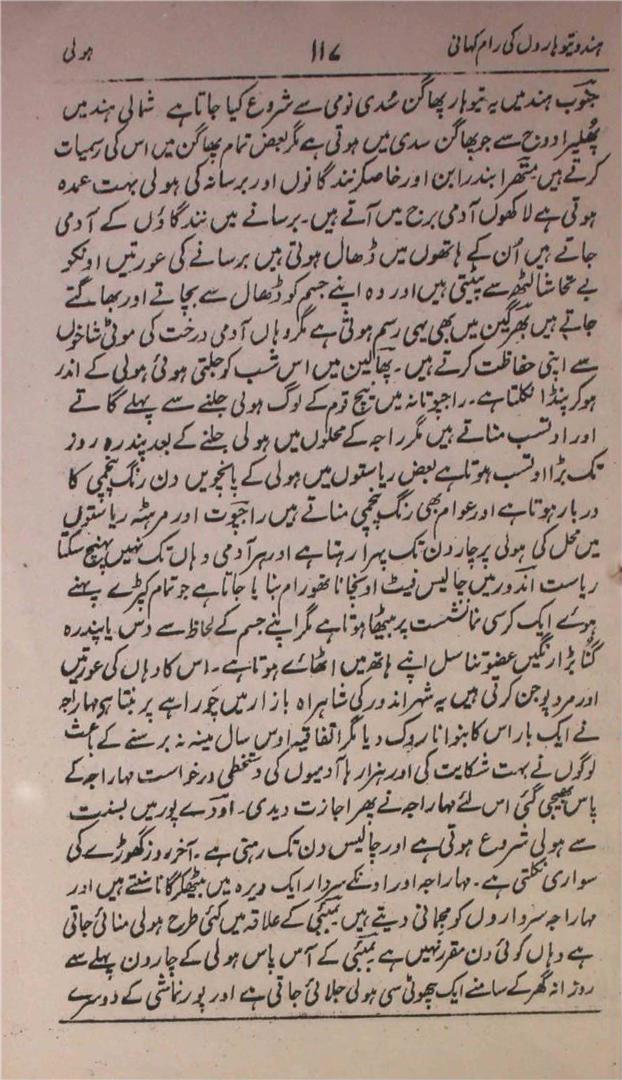 ہندو تیوہاروں کی رام کہانی ۱۱۷ ہولی
جنوب ہند میں یہ تیوہار پھاگن سُدی نومی سے شروع کیا جاتا ہے شمالی ہند میں
پھُلیرا دوج سے جو پھاگن سدی میں ہوتی ہے مگر بعض تمام پھاگن میں اس کی رسمیات
کرتے ہیں متھرا بندرابن اور خاصکر نند گانوں اور برسانہ کی ہولی بہت عمدہ
ہوتی ہے لاکھوں آدمی برج میں آتے ہیں۔ برسانے میں نند گاؤں کے آدمی
جاتے ہیں اُن کے ہاتھوں میں ڈھال ہوتی ہیں برسانے کی عورتیں اونکو
بے تحاشا لٹھ سے پیٹتی ہیں اور وہ اپنے جسم کو ڈھال سے بچاتے اور بھاگتے
جاتے ہیں بھرگین میں بھی یہی رسم ہوتی ہے مگر وہاں آدمی درخت کی موٹی شاخوں
سے اپنی حفاظت کرتے ہیں۔ پھالین میں اس شب کو جلتی ہوئی ہولی کے اندر
ہوکر پنڈا نکلتا ہے۔ راجپوتانہ میں نیچ قوم کے لوگ ہولی جلنے سے پہلے گاتے
اور اوتسب مناتے ہیں مگر راجہ کے محلوں میں ہولی جلنے کے بعد پندرہ روز
تک بڑا اوتسب ہوتا ہے بعض ریاستوں میں ہولی کے پانچویں دن رنگ پنچمی کا
دربار ہوتا ہے اور عوام بھی رنگ پنچمی مناتے ہیں راجپوت اور مرہٹہ ریاستوں
میں محل کی ہولی پر چار دن تک پہرا رہتا ہے اور ہر آدمی وہاں تک نہیں پہنچ سکتا
ریاست اندور میں چالیس فیٹ اونچا ناتھو رام بنایا جاتا ہے جو تمام کپڑے پہنے
ہوئے ایک کرسی نما نشست پر بیٹھا ہوتا ہے مگر اپنے جسم کے لحاظ سے دس یا پندرہ
گُنا بڑا رنگین عضو تناسل اپنے ہاتھ میں اٹھائے ہوتا ہے۔ اس کا وہاں کی عورتیں
اور مرد پوجن کرتی ہیں یہ شہر اندور کی شاہراہ بازار میں چوراہے پر بنتا ہے مہاراجہ
نے ایک بار اس کا بنوانا روک دیا مگر اتفاقیہ اوس سال مینہ نہ برسنے کے باعث
لوگوں نے بہت شکایت کی اور ہزارہا آدمیوں کی دستخطی درخواست مہاراجہ کے
پاس بھیجی گئی اس لئے مہاراجہ نے پھر اجازت دیدی۔ اودے پور میں بسنت
سے ہولی شروع ہوتی ہے اور چالیس دن تک رہتی ہے۔ آخر روز گھوڑے کی
سواری نکلتی ہے۔ مہاراجہ اور اونکے سردار ایک ویرہ میں بیٹھکر گانا سنتے ہیں اور
مہاراجہ سرداروں کو مجمانی دیتے ہیں بمبئی کے علاقہ میں کئی طرح ہولی منائی جاتی
ہے وہاں کوئی دن مقرر نہیں ہے بمبئی کے آس پاس ہولی کے چار دن پہلے سے
روزانہ گھر کے سامنے ایک چھوٹی سی ہولی جلائی جاتی ہے اور پورنماشی کے دوسرے